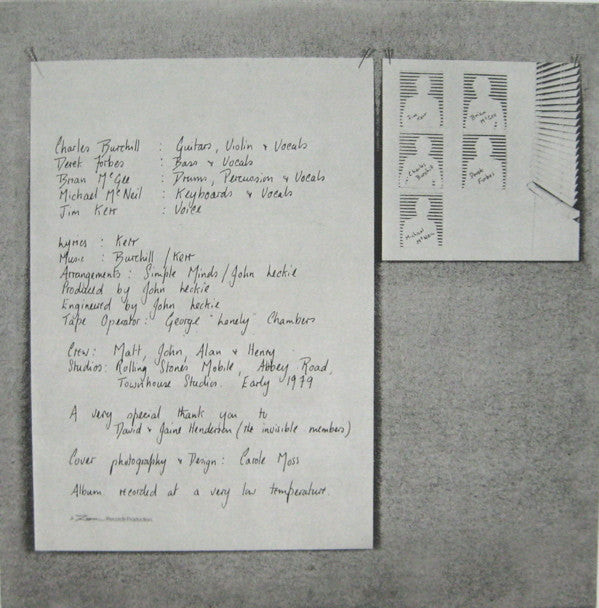 Charles Burchill : Guitars, Violin & Vocals
Derek Forbes : Bass & Vocals
Brian McGee : Drums, Percussion & Vocals
Michael McNeil : Keyboards & Vocals
Jim Kerr : Voice
Lyrics : Kerr
Music : Burchill / Kerr
Arrangements : Simple Minds / John Leckie
Produced by John Leckie
Engineered by John Leckie
Tape Operator : George "Lonely" Chambers
Crew : Matt, John, Alan & Henry
Studios : Rolling Stones Mobile, Abbey Road,
Townhouse Studios. Early 1979
A very special thank you to
David & Jaine Henderson (the invisible members)
Cover photography & Design : Carole Moss
Album recorded at a very low temperature.
A Zoom Records Production
Jim Kerr
Brian McGee
Charles Burchill
Derek Forbes
Michael McNeil